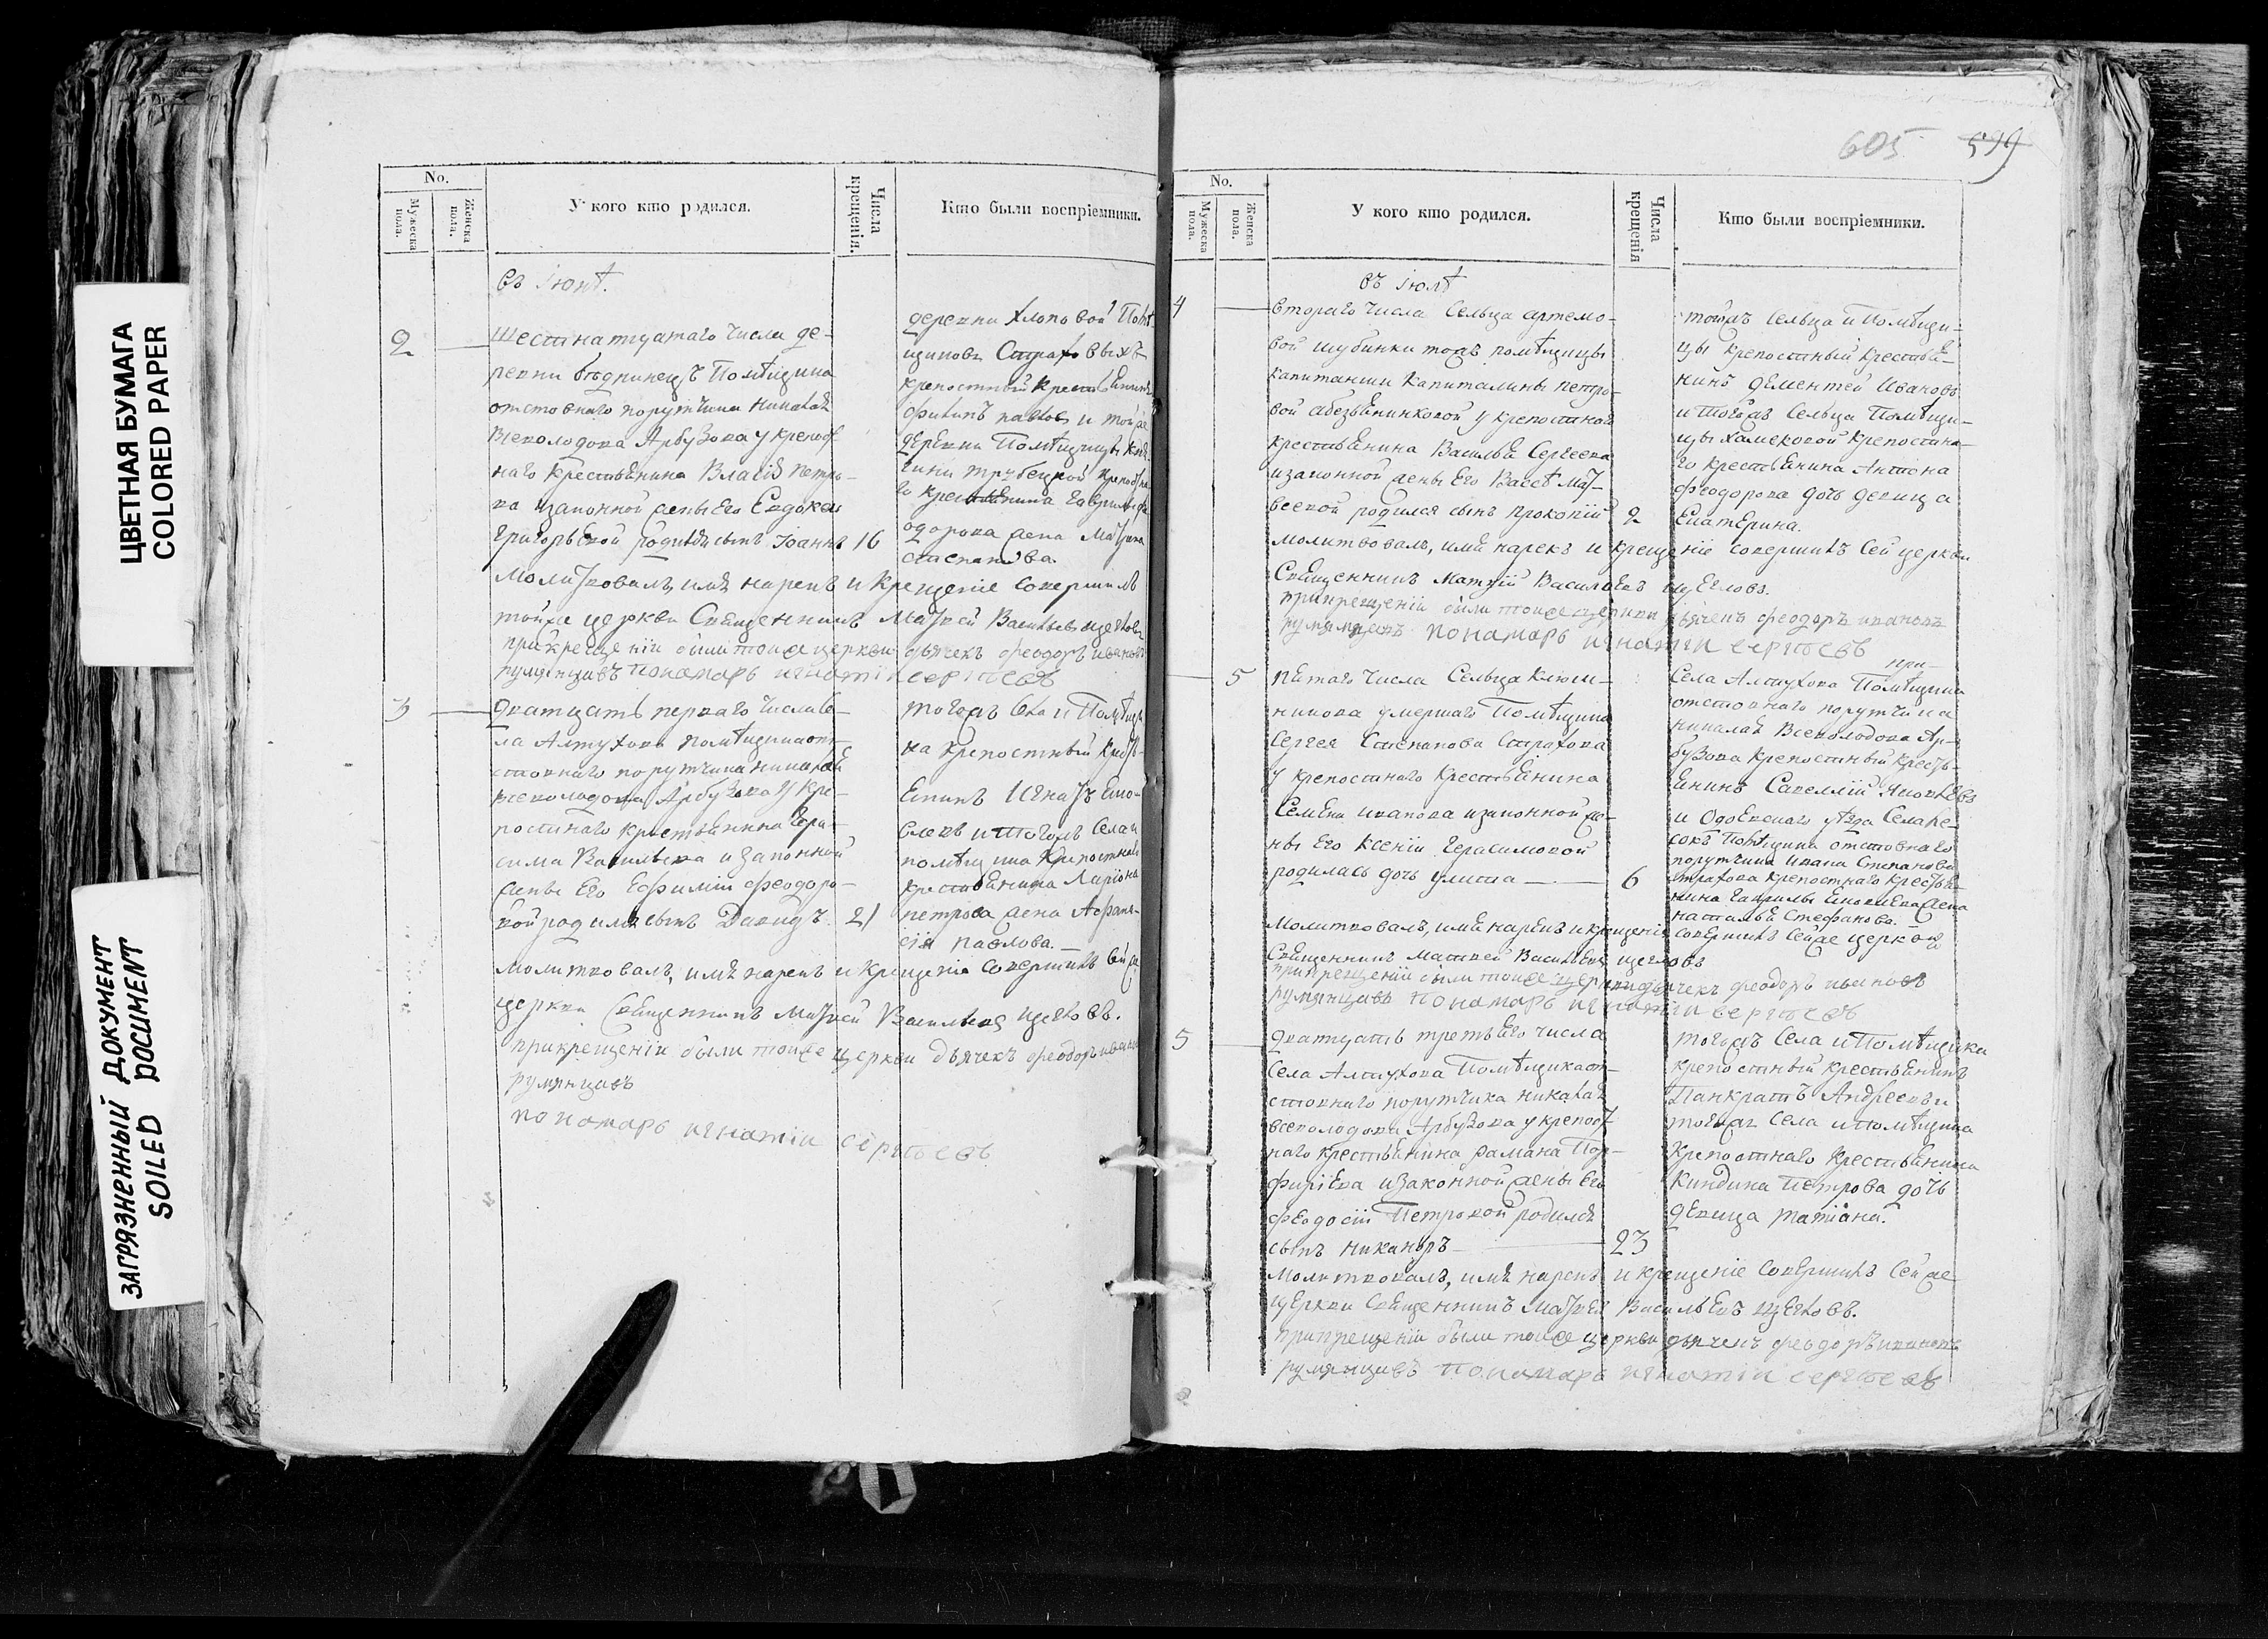 ЦВЕТНАЯ БУМАГА
COLORED PAPER
ЗАГРЯЗНЕННЫЙ ДОКУМЕНТ
SOILED DOCUMENT
No.
Мужеска пола.
Женска пола.
У кого кто родился.
Числа крещенія.
Кто были воспріемники.
въ іюнѣ.
2
Шестнатцатаго числа де-
ревни Помѣщика
отставнаго порутчика Николая
Всеволодова Арбузова у крепост
наго крестьянина Власія Петро-
ва и законной жены его Евдокеи
Григорьевой родился сынъ Іоаннъ 16
деревни Хлоповой Помѣ
щиковъ Страховыхъ
крепостный крестьянинъ
Филипъ Павлов и той же
деревни Помѣщицы Кня
гини Трубецкой крепостна
го крестьянина Гаврилы Фе
одорова жена Матрона
Молитвовалъ, имя нарекъ и крещеніе совершилъ
тойже церкви Священникъ Матвей Васильевъ Щегловъ
при крещеніи были тоиже церкви дьячекъ Феодоръ Ивановъ
румянцавъ пономарь игнатіи сергѣевъ
3
Дватцать перваго числа се-
ла Алтухова помѣщика от-
ставнаго порутчика Николая
Всеволодова Арбузова у кре-
постнаго крестьянина Гера-
сима Васильева и законной
жены его Ефиміи Феодоро-
вой родился сынъ Давидъ. 21
тогожъ села и Помѣщи
ка крепостный крестья-
енинъ Игнатъ
и тогожъ села и
помѣщика крепостнаго
крестьянина Ларіона
Петрова жена Афана-
сія Павлова.
Молитвовалъ, имя нарекъ и крещеніе совершилъ сей же
церкви Священникъ Матвей Васильевъ Щегловъ.
при крещеніи были тоиже церкви дьячекъ феодоръ иванов
румянцавъ
пономарь игнатіи сергѣевъ
605 599
No.
Мужеска пола.
Женска пола.
У кого кто родился.
Числа крещенія
Кто были воспріемники.
въ іюлѣ
4
Втораго числа Сельца Артемо-
вой шубинки тожъ помѣщицы
капитанши Капиталины Петро-
вой у крепостнаго
крестьянина Василья Сергеева
и законной жены его Мат-
веевой родился сынъ Прокопій 2
тогожъ сельца и Помѣщи-
цы крепостный крестьян-
нинъ Дементей Ивановъ
и тогожъ Сельца Помѣщи-
цы крепостна-
го крестьянина Антона
Феодорова дочь девица
Екатерина.
Молитвовалъ, имя нарекъ и крещеніе совершилъ сей церкви
Священникъ Матвій Васильевъ Щегловъ.
при крещеніи были тоиже церкви дьячекъ феодоръ ивановъ
румянцавъ пономарь игнатіи сергѣевъ
5
Пятаго числа Сельца Ключи-
никова умершаго Помѣщика
Сергея Степанова Страхова
у крепостнаго крестьянина
Семена Иванова и законной же-
ны его Ксеніи Герасимовой
родилась дочь улита 6
при-
Села Алтухова Помѣщика
отставнаго порутчика
Николая Всеволодова Ар-
бузова крепостный кресть-
янинъ Савеллій
и Одоевскаго уѣзда Села
Помѣщика отставнаго
порутчика Ивана Степанова
Страхова крепостнаго крестья-
нина Гаврилы жена
Наталья Стефанова.
Молитвовалъ, имя нарекъ и крещеніе совершилъ сей же церкви
Священникъ Матвей Васильевъ Щегловъ
при крещеніи были тоиже церкви дьячекъ феодоръ ивановъ
румянцавъ пономарь игнатіи сергѣевъ
5
Дватцать третьего числа
Села Алтухова Помѣщика от-
ставнаго порутчика Николая
Всеволодова Арбузова у крепост
наго крестьянина Рамана Пор-
фиріева и законной жены его
Феодосіи Петровой родился
сынъ Никаноръ 23
тогожъ Села и Помѣщика
крепостный крестьянинъ
Панкратъ Андреевъ и
тогожъ Села и Помѣщика
крепостнаго крестьянина
Киндина Петрова дочь
девица Татіана.
Молитвовалъ, имя нарекъ и крещеніе совершилъ сей же
церкви Священникъ Матвей Васильевъ Щегловъ.
при крещеніи были тоиже церкви дьячекъ феодоръ ивановъ
румянцавъ пономарь игнатіи сергѣевъ